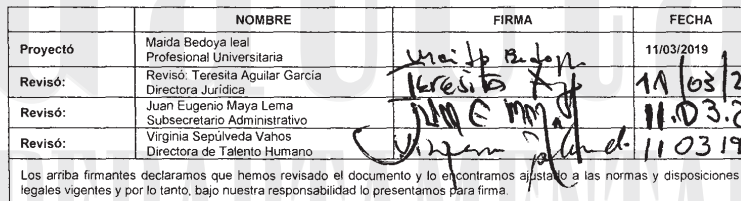 NOMBRE FIRMA FECHA
Proyectó Maida Bedoya leal
Profesional Universitaria 11/03/2019
Revisó: Revisó: Teresita Aguilar García
Directora Jurídica Teresita 11/03/2
Revisó: Juan Eugenio Maya Lema
Subsecretario Administrativo 11.03.2
Revisó: Virginia Sepúlveda Vahos
Directora de Talento Humano 11 03 19
Los arriba firmantes declaramos que hemos revisado el documento y lo encontramos ajustado a las normas y disposiciones
legales vigentes y por lo tanto, bajo nuestra responsabilidad lo presentamos para firma.